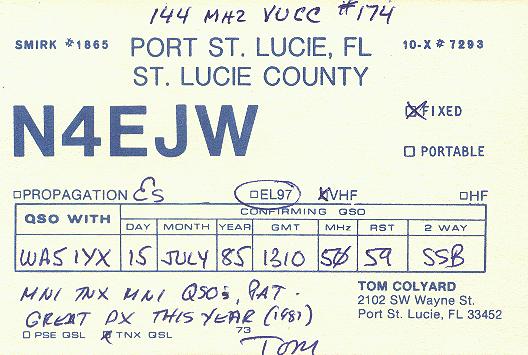 144 MHZ VUCC #174
SMIRK #1865 PORT ST. LUCIE, FL 10-X # 7293
ST. LUCIE COUNTY
N4EJW
FIXED
PORTABLE
PROPAGATION Es EL97 VHF HF
QSO WITH CONFIRMING QSO
DAY MONTH YEAR GMT MHz RST 2 WAY
WA5IYX 15 JULY 85 1310 50 59 SSB
MNI TNX MNI QSOs, PAT.
GREAT DX THIS YEAR (1987)
PSE QSL TNX QSL 73
Tom
TOM COLYARD
2102 SW Wayne St.
Port St. Lucie, FL 33452